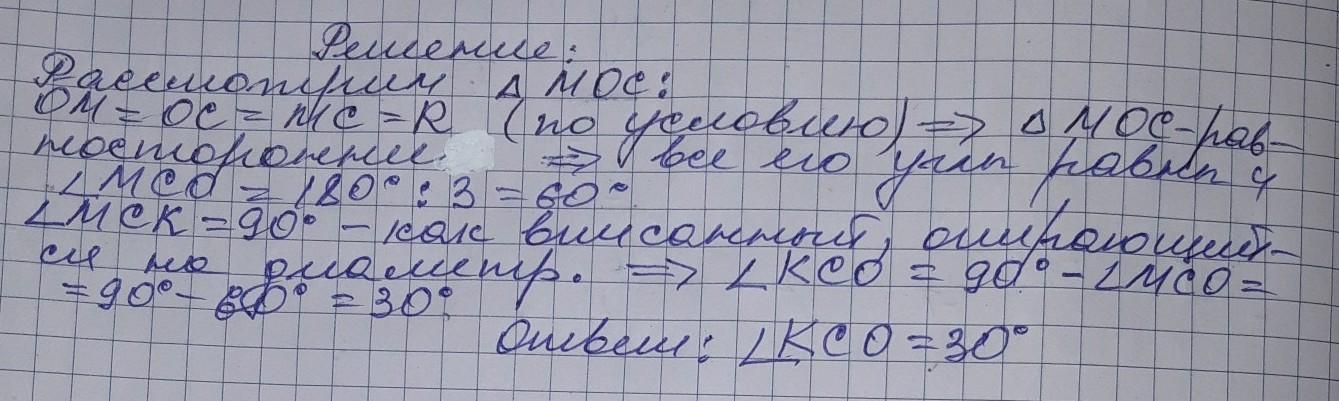 Решение:
Рассмотрим △ MOC:
OM = OC = MC = R (по условию) => △ MOC-рав-
носторонние => все его углы равны и
∠MCO = 180° : 3 = 60°
∠MCK = 90° - как вписанный, опирающий-
ся на диаметр. => ∠KCO = 90° - ∠MCO =
= 90° - 60° = 30°.
Ответ: ∠KCO = 30°